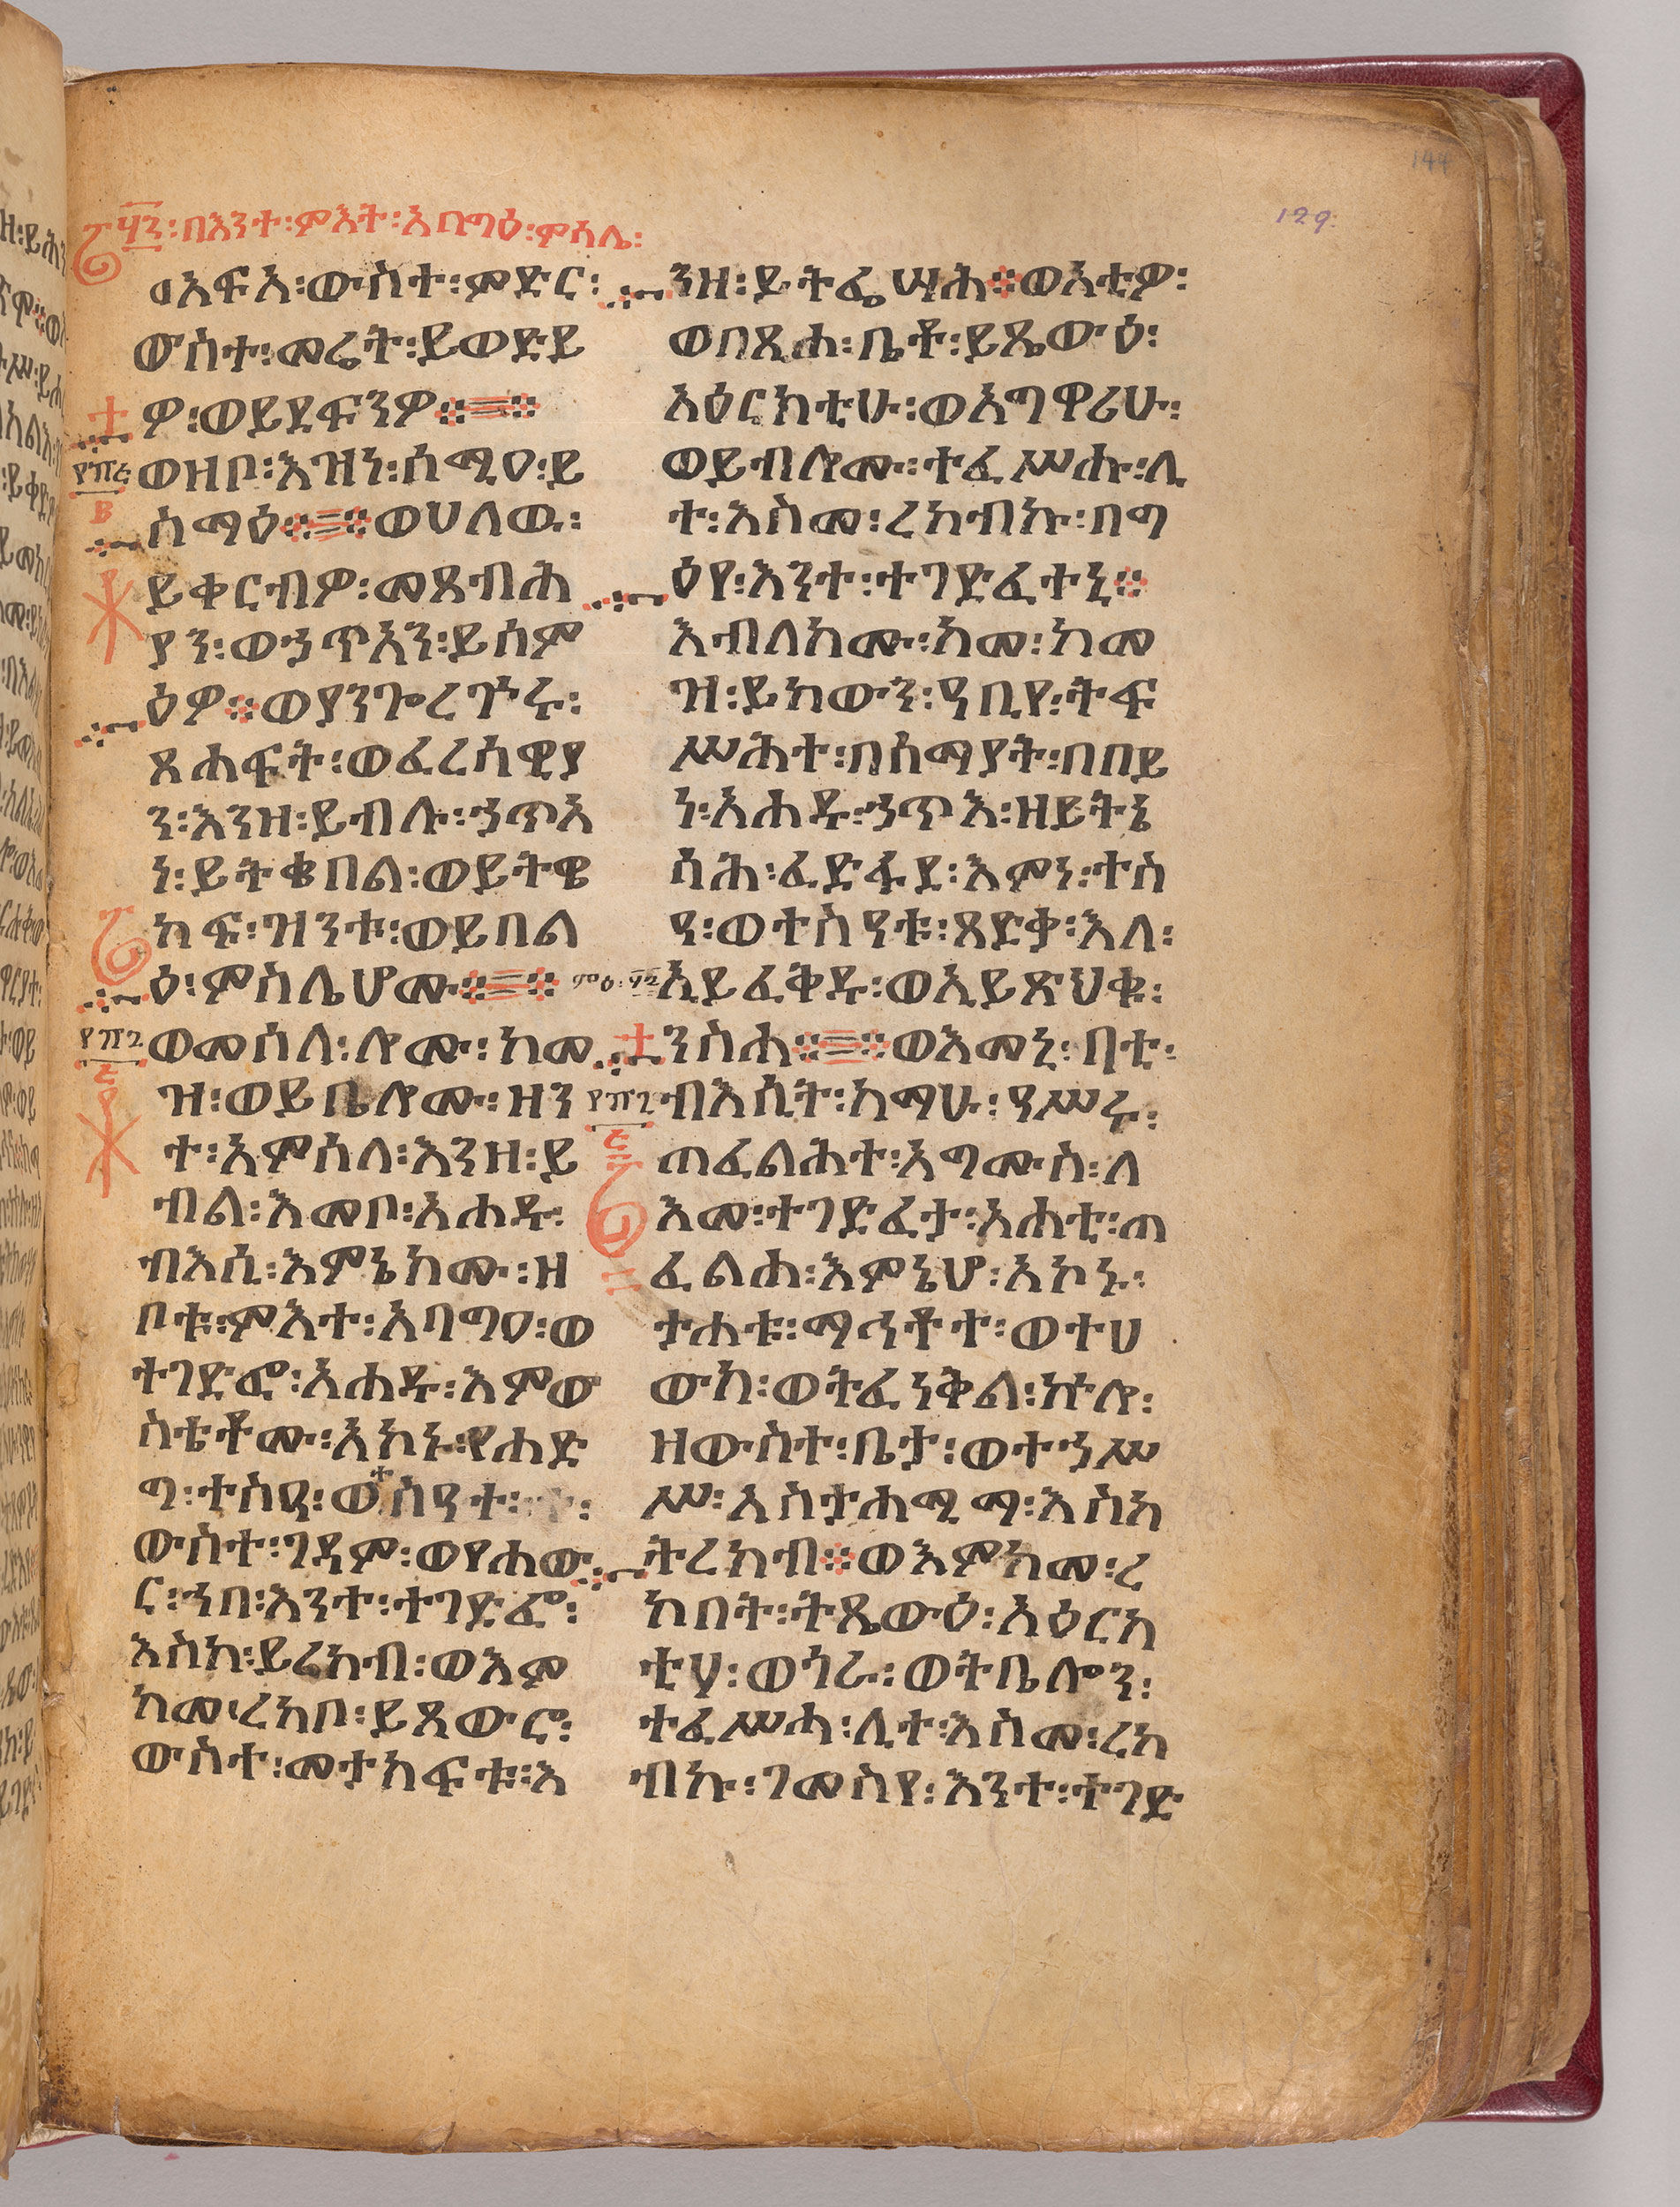 ፶፭ : በእንተ ፡ ምእት ፡ አባግዕ ፡ ምሳሌ ፡
ወአፍአ ፡ ውስተ ፡ ምድር ፡
ውስተ ፡ መሬት ፡ ይወድይ
ዎ ፡ ወይደፍንዎ ።=።
ወዘቦ ፡ እዝነ ፡ ሰሚዐ ፡ ይ
ስማዕ ።=። ወሀለዉ ፡
ይቀርብዎ ፡ መጸብሕ
ያን ፡ ወኃጥአን ፡ ይሰም
ዕዎ ። ወያንጐረጕሩ ፡
ጸሐፍት ፡ ወፈሪሳዊያ
ን ፡ እንዘ ፡ ይብሉ ፡ ኃጥአ
ነ ፡ ይትቄበል ፡ ወይትዌ
ከፍ ፡ ዝንቱ ፡ ወይበል
ዕ ፡ ምስሌሆሙ ።=።
ወመሰለ ፡ ሎሙ ፡ ከመ
ዝ ፡ ወይቤሎሙ ፡ ዘን
ተ ፡ አምሳለ ፡ እንዘ ፡ ይ
ብል ፡ እመቦ ፡ አሐዱ ፡
ብእሲ ፡ እምኔክሙ ፡ ዘ
ቦቱ ፡ ምእተ ፡ አባግዐ ፡ ወ
ተገድፎ ፡ አሐዱ ፡ እምው
ስቴቶሙ ፡ አኮኑ ፡ የሐድ
ግ ፡ ተስዓ ፡ ወተስዓተ ፡
ውስተ ፡ ገዳም ፡ ወየሐው
ር ፡ ኀበ ፡ እንተ ፡ ተገድፈቶ ፡
እስከ ፡ ይረክብ ፡ ወእም
ከመ ፡ ረከቦ ፡ ይጸውሮ ፡
ውስተ ፡ መታክፍቱ ፡ እ
ንዘ ፡ ይትፌሣሕ ። ወአቲዎ ፡
ወበጺሐ ፡ ቤቶ ፡ ይጼውዕ ፡
አዕርክቲሁ ፡ ወአግዋሪሁ ፡
ወይብሎሙ ፡ ተፈሥሑ ፡ ሊ
ተ ፡ እስመ ፡ ረከብኩ ፡ በግ
ዕየ ፡ እንተ ፡ ተገድፈተኒ ።
እብለክሙ ፡ ከመ ፡ ከመ
ዝ ፡ ይከውን ፡ ዓቢየ ፡ ትፍ
ሥሕተ ፡ በሰማያት ፡ በበይ
ነ ፡ አሐዱ ፡ ኃጥእ ፡ ዘይትኔ
ሳሕ ፡ ፈድፋደ ፡ እምነ ፡ ተስ
ዓ ፡ ወተስዓቱ ፡ ጻድቃ ፡ እለ ፡
ምዕ ፡ ፶፮
ኢይፈቅዱ ፡ ወኢይጽህቁ ፡
ንስሐ ።=። ወእመኒ ፡ ባቲ ፡
ብእሲት ፡ ከማሁ ፡ ዓሥሩ ፡
ጠፈልሕተ ፡ አግሙስ ፡ ለ
እመ ፡ ተገድፈታ ፡ አሐቲ ፡ ጠ
ፈልሐ ፡ እምኔሆ ፡ አኮኑ ፡
ታሐቱ ፡ ማኅቶተ ፡ ወተሀ
ውክ ፡ ወትፈነቅል ፡ ኵሎ ፡
ዘውስተ ፡ ቤታ ፡ ወተኃሥ
ሥ ፡ አስታሐሚማ ፡ እስከ
ትረክብ ። ወእምከመ ፡ ረ
ከበት ፡ ትጼውዕ ፡ አዕርክ
ቲሃ ፡ ወጎራ ፡ ወትቤሎን ፡
ተፈሥሓ ፡ ሊተ ፡ እስመ ፡ ረከ
ብኩ ፡ ገመስየ ፡ እንተ ፡ ተገድ
129
144